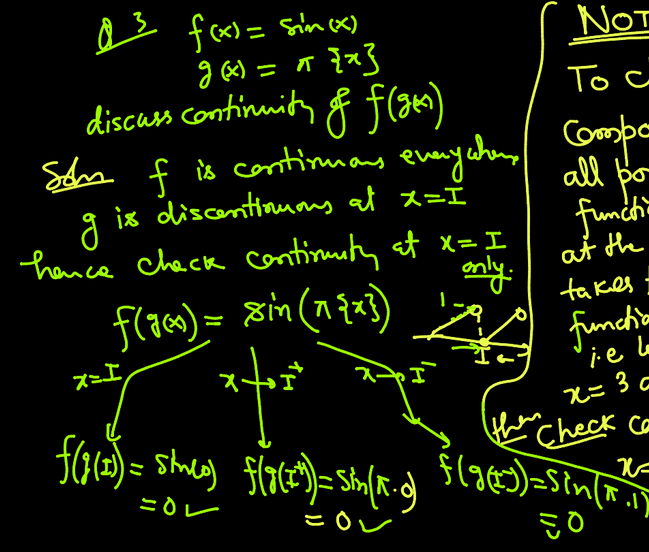 Q 3 f(x) = sin(x)
g(x) = π {x}
discuss continuity of f(g(x))
Soln f is continuous everywhere
g is discontinuous at x = I
hence check continuity at x = I
only.
f(g(x)) = sin(π{x})
1
I
x=I x→I⁺ x→I⁻
f(g(I)) = sin(0) f(g(I⁺)) = sin(π.0) f(g(I⁻)) = sin(π.1)
= 0 ✓ = 0 ✓ = 0
NOT
To c
Compo
all po
functi
at the
takes
functi
i.e
x = 3
then check co
x=